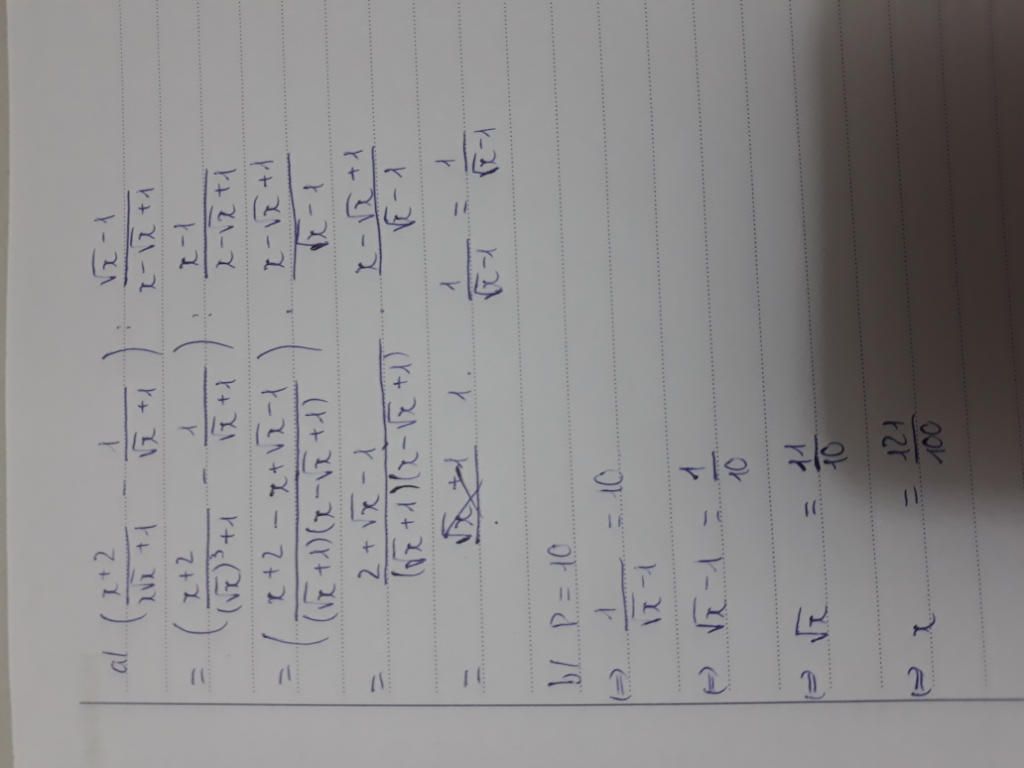 a/ ( (x+2)/(x√x+1) - 1/(√x+1) ) : (√x-1)/(x-√x+1)
= ( (x+2)/((√x)³+1) - 1/(√x+1) ) : (x-1)/(x-√x+1)
= ( (x+2-x+√x-1)/((√x+1)(x-√x+1)) ) . (x-√x+1)/(√x-1)
= (2+√x-1)/((√x+1)(x-√x+1)) . (x-√x+1)/(√x-1)
= 1 . 1/(√x-1) = 1/(√x-1)
b/ P = 10
(=) 1/(√x-1) = 10
(=) √x-1 = 1/10
(=) √x = 11/10
(=) x = 121/100